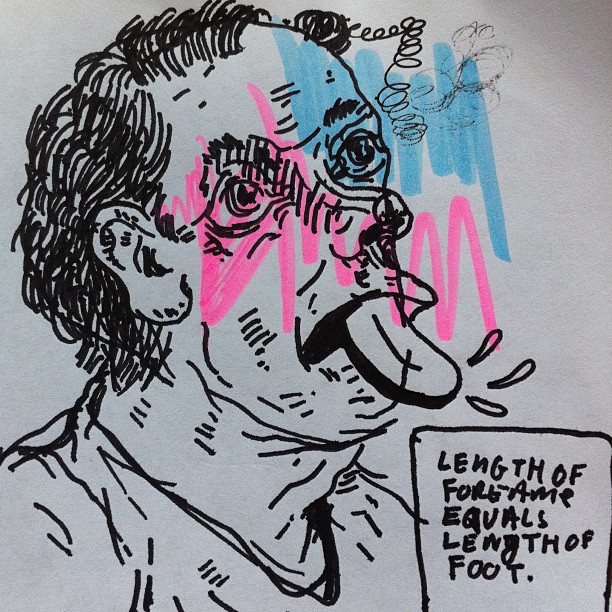 LENGTH OF
FOREAME
EQUALS
LENGTH OF
FOOT.